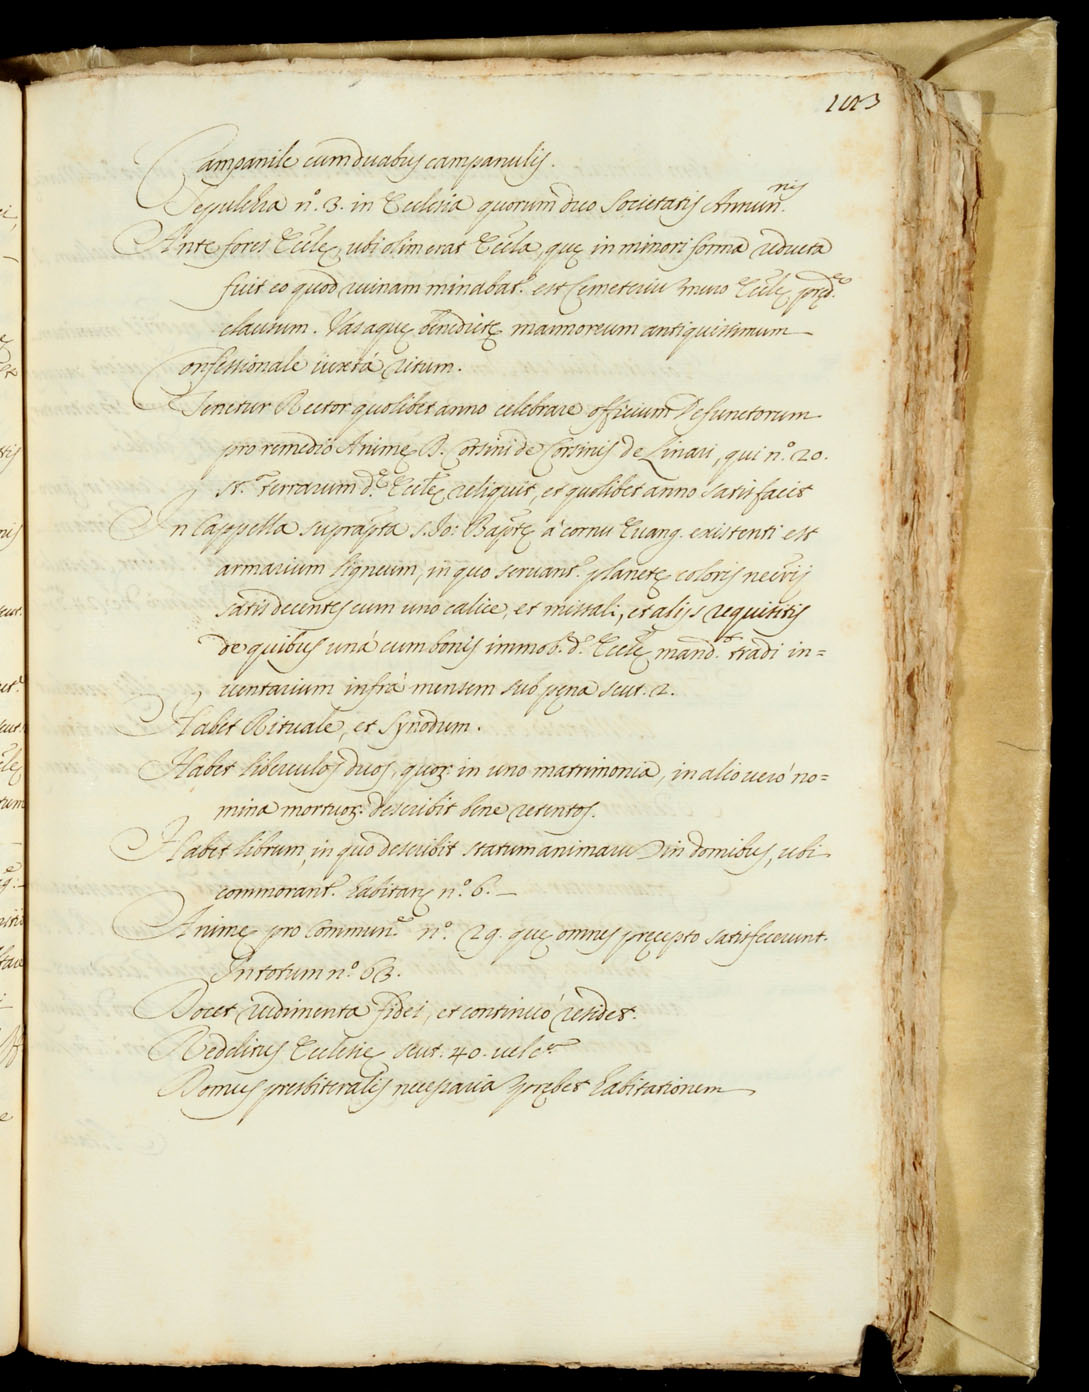 Campanile cum duabus campanulis.
Sepulchra nº. 3. in Ecclesia quorum duo Societatis Annun.nis
Ante fores Eccłę, ubi olim erat Eccła, quę in minori forma reducta
fuit eo quod ruinam minabat.r est Cemeteriū muro Eccłę pręd.
clausum. Vas aquę benedictę marmoreum antiquissimum
Confessionale iuxtà ritum.
Tenetur Rector quolibet anno celebrare officium Defunctorum
pro remedio Animę D. Corsini de Corsinis de Linari, qui nº. 20.
st. Terrarum d.ę Eccłę reliquit, et quolibet anno satisfacit
In Cappella supràpta S. Io: Bapte à cornu Euang. existenti est
armarium ligneum, in quo seruant.r planetę coloris necrij
satis decentes cum uno calice, et missali, et alijs requisitis
de quibus unà cum bonis immob. d.ę Eccłę mand.t tradi in=
uentarium infrà mensem sub pęna scut. 2.
Habet Rituale, et Synodum.
Habet libeculos duos, quoꝝ in uno matrimonia, in alio uerò no=
mina mortuoꝝ describit bene retentos.
Habet librum, in quo describit statum animarū in domibus, ubi
commorant.r habitant nº. 6.
Animę pro Commun.e nº. 29. quę omnes pręcepto satisfecerunt.
In totum nº. 63.
Docet rudimenta fidei, et continuò residet.
Redditus Ecclesię scut. 40. uel c.a
Domus presbiteralis necessaria prębet habitationem